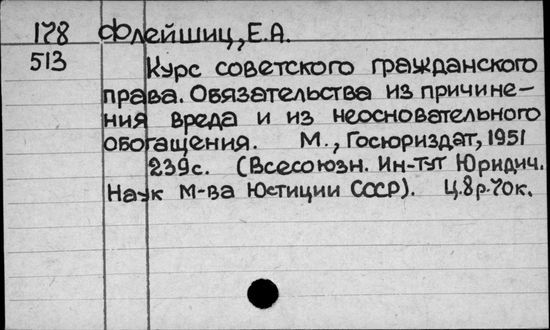 178 Флейшиц, Е.А.
513 Курс советского гражданского
права. Обязательства из причине-
ния вреда и из неосновательного
обогащения. М., Госюриздат, 1951
239с. (Всесоюзн. Ин-тут Юридич.
Наук М-ва Юстиции СССР). Ц.8р.70к.